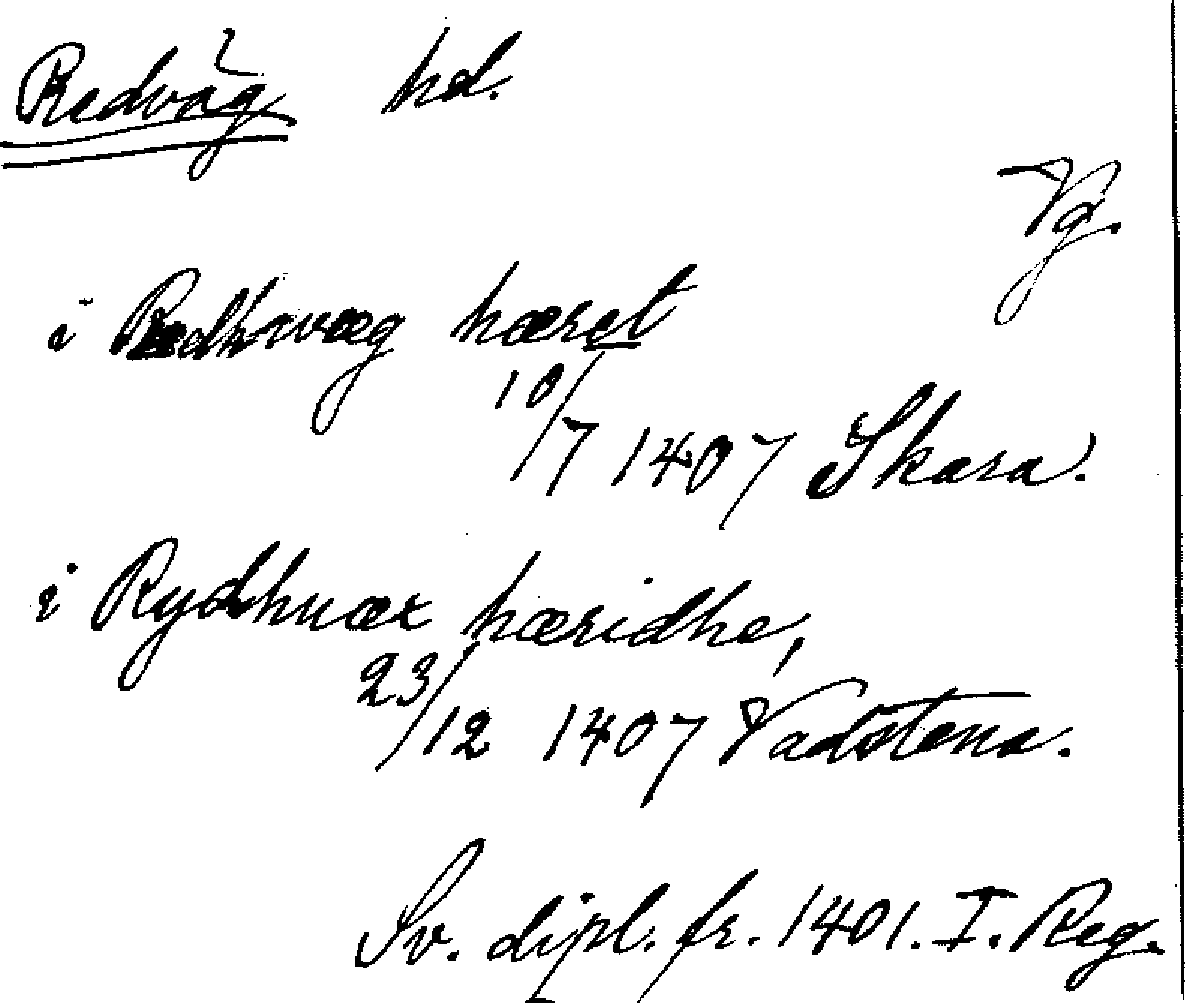 Redväg hd.
Vg.
i Redhwæg hæret
10/7 1407 Skara.
i Rydhuæx hæridhe,
23/12 1407 Vadstena.
Sv. dipl. fr. 1401. I. Reg.